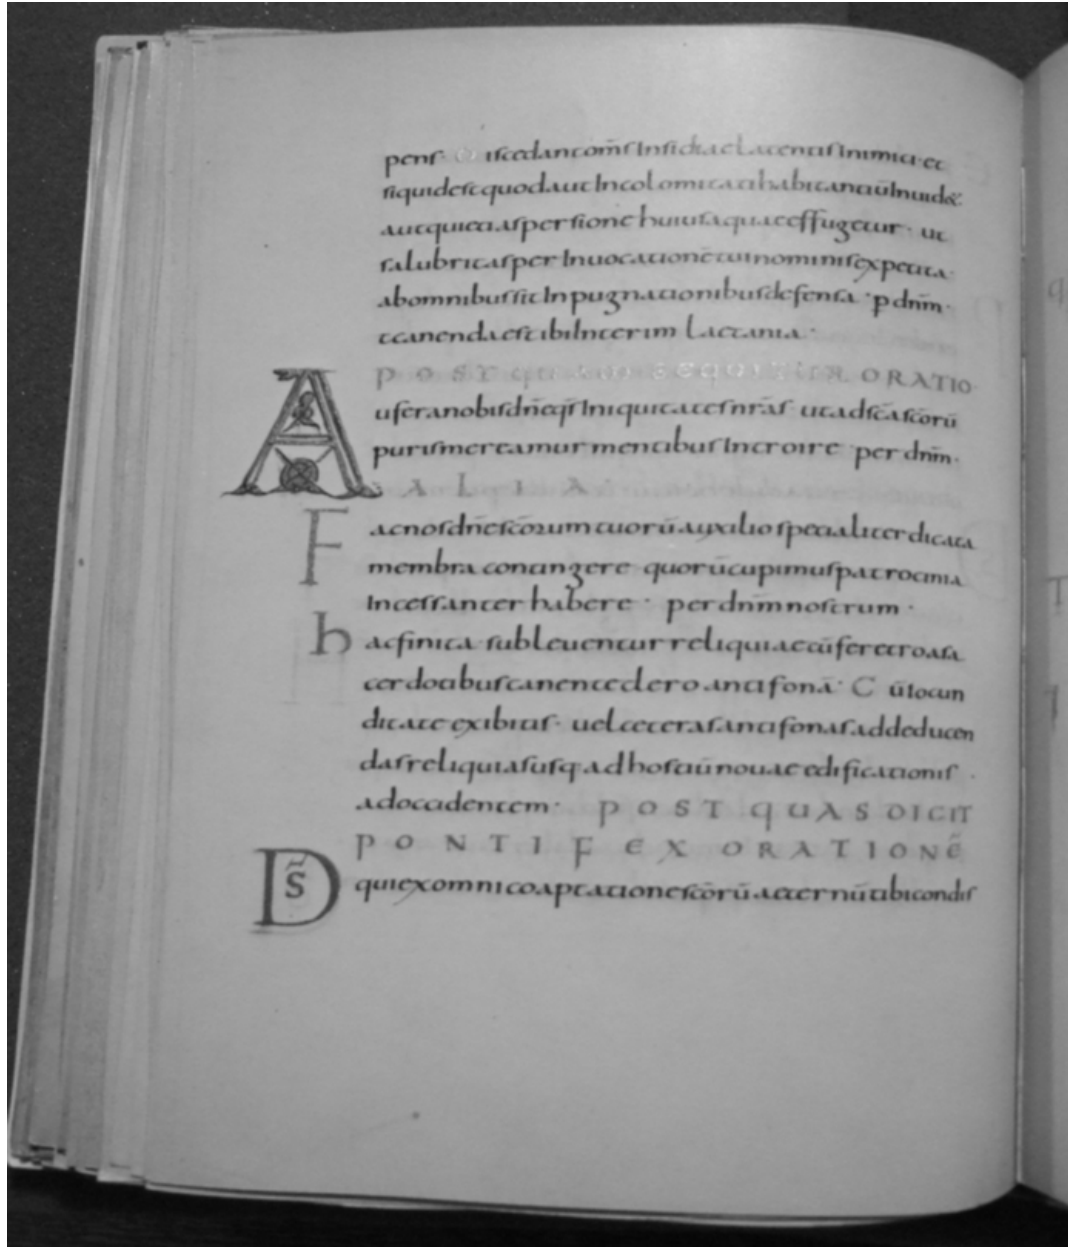 penſ · Discedant om̄s Insidiae Latentis Inimici · et
siquid est quod aut Incolomitati habitantiū Inuid&
aut quieti aspersione huius aquae effugetur · ut
salubritas per Inuocationē tui nominis expetita ·
ab omnibus sit Inpugnationibus defensa · p dnm̄ ·
tcanenda est ibi Interim Laetania ·
POST QUAM SEQUITUR ORATIO
Aufer a nobis dn̄e qs̄ Iniquitates nrā̄s ut ad scā scōrū
puris mereamur mentibus Introire · per dnm̄ ·
ALIA ·
Fac nos dn̄e scōrum tuorū auxilio specialiter dicata
membra contingere quorū cupimus patrocinia
Incessanter habere · per dnm̄ nostrum ·
hac finita · subleuentur reliquiae cū feretro a sa
cerdotibus canente clero antifonā · Cū Iocun
ditate exibitis · uel ceteras antifonas ad deducen
das reliquias usq ad hostiū nouae edificationis ·
ad occidentem · POST QUAS DICIT
PONTIFEX ORATIONĒ
Ds̄ qui ex omni coaptatione scōrū aeternū tibi condis